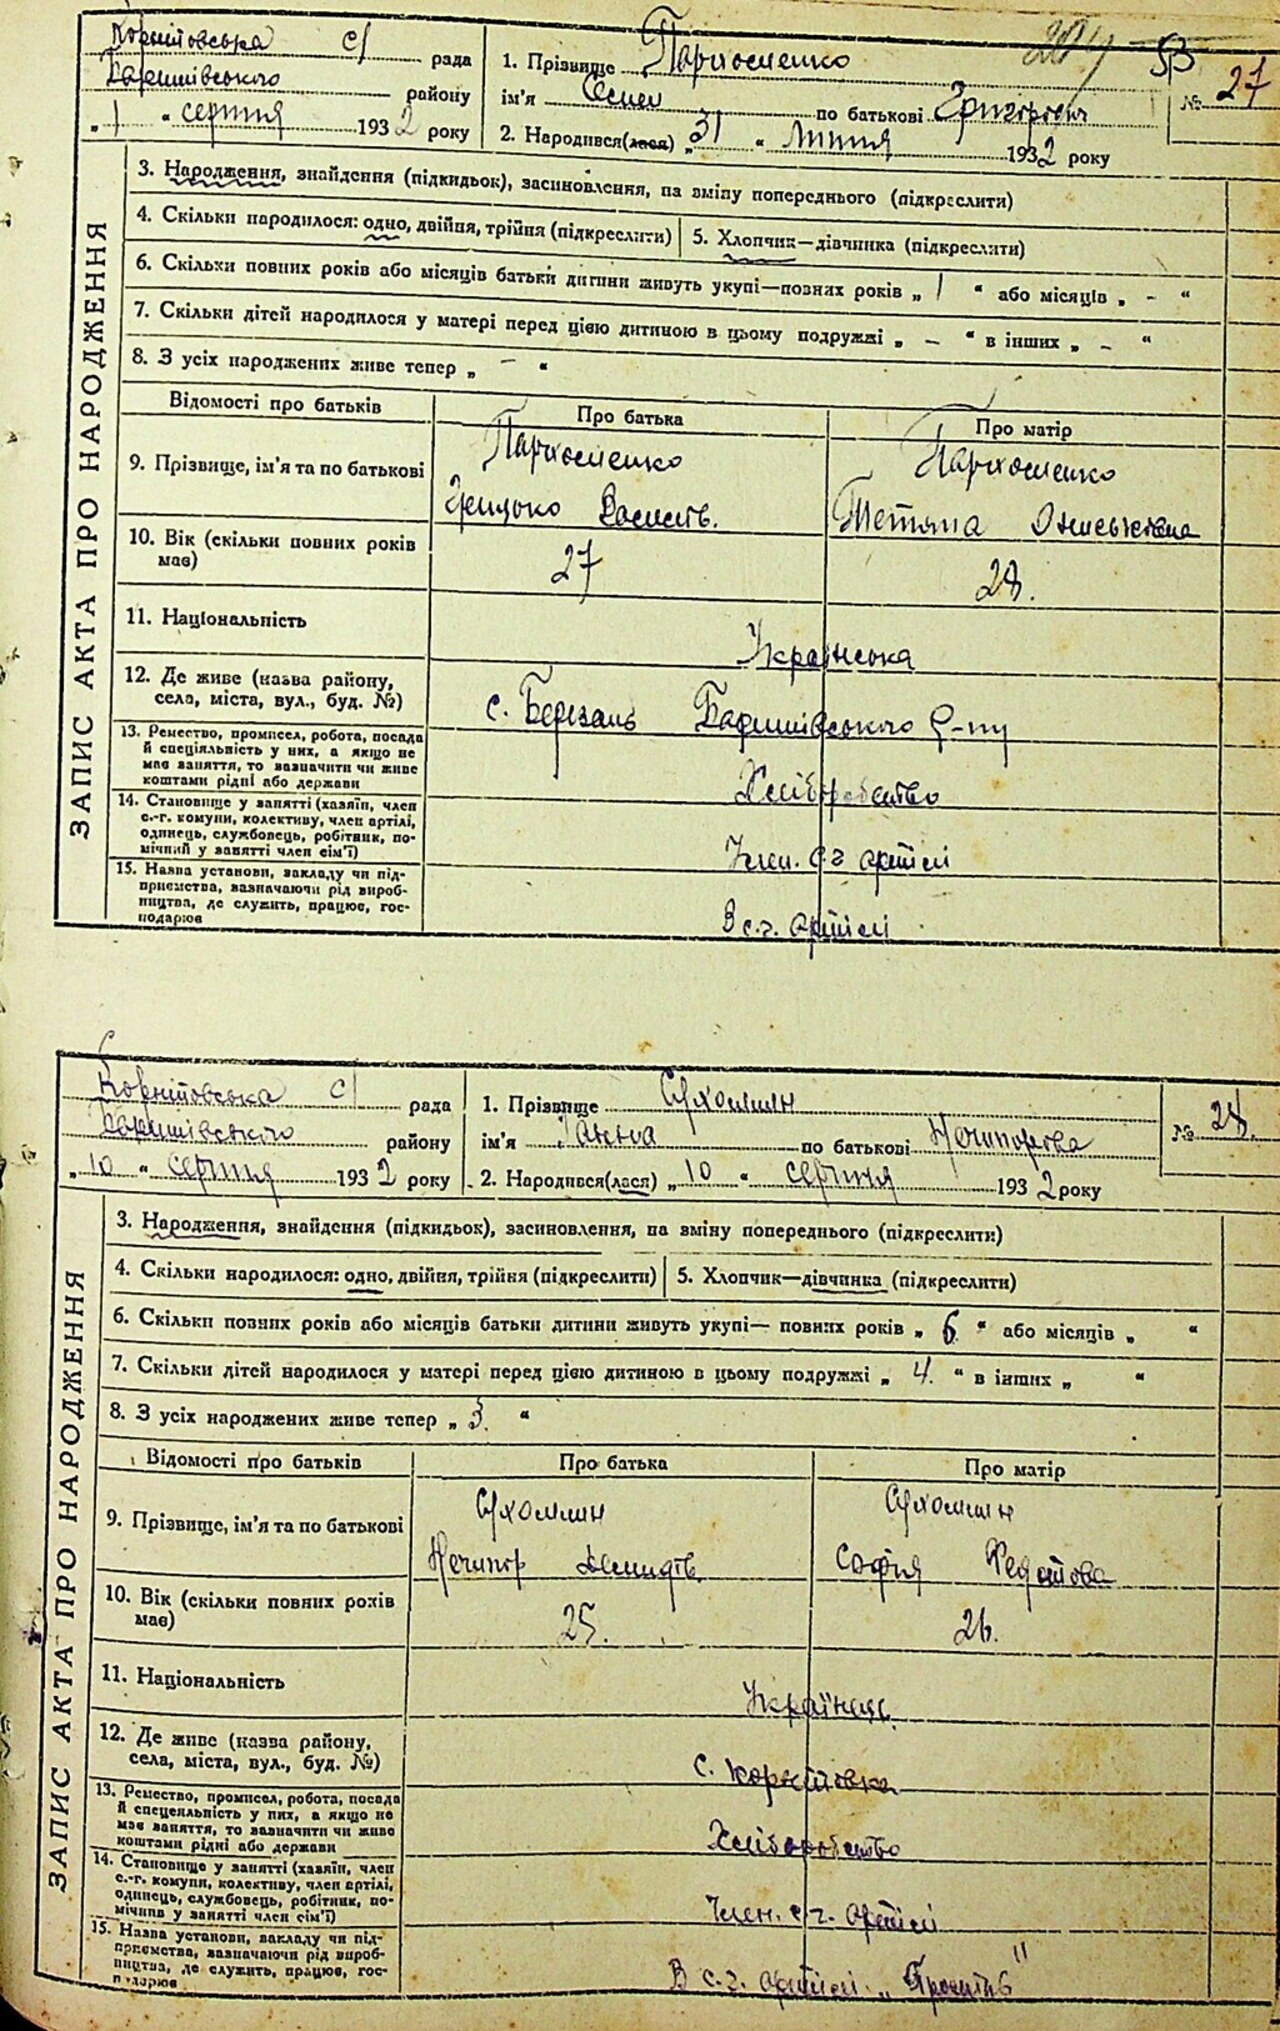 с/ рада
Баришівського району
„ 1 “ серпня 1932 року
1. Прізвище Пархоменко
ім'я по батькові Григорович
2. Народився(лася) „ 31 “ липня 1932 року
№ 27
ЗАПИС АКТА ПРО НАРОДЖЕННЯ
3. Народження, знайдення (підкидьок), засиновлення, на зміну попереднього (підкреслити)
4. Скільки народилося: одно, двійня, трійня (підкреслити) 5. Хлопчик—дівчинка (підкреслити)
6. Скільки повних років або місяців батьки дитини живуть укупі—повних років „ 1 “ або місяців „ - “
7. Скільки дітей народилося у матері перед цією дитиною в цьому подружжі „ - “ в інших „ - “
8. З усіх народжених живе тепер „ - “
Відомості про батьків Про батька Про матір
9. Прізвище, ім'я та по батькові
Пархоменко Пархоменко
Грицько Тетяна
10. Вік (скільки повних років має) 27 28.
11. Національність Українська
12. Де живе (назва району, села, міста, вул., буд. №) с. Березань Баришівського р-ну
13. Ремество, промисел, робота, посада й спеціяльність у них, а якщо не має заняття, то вазначити чи живе коштами рідні або держави Хліборобство
14. Становище у занятті (хазяїн, член с.-г. комуни, колективу, член артілі, одинець, службовець, робітник, помічний у занятті член сім'ї) Член. с.г артілі
15. Назва установи, закладу чи підприємства, вазначаючи рід виробництва, де служить, працює, господарює В с.г. артілі
с/ рада
Баришівського району
„ 10 “ серпня 1932 року
1. Прізвище Сухомлин
ім'я Ганна по батькові Нечипорівна
2. Народився(лася) „ 10 “ серпня 1932 року
№ 28.
ЗАПИС АКТА ПРО НАРОДЖЕННЯ
3. Народження, знайдення (підкидьок), засиновлення, на зміну попереднього (підкреслити)
4. Скільки народилося: одно, двійня, трійня (підкреслити) 5. Хлопчик—дівчинка (підкреслити)
6. Скільки повних років або місяців батьки дитини живуть укупі— повних років „ 6 “ або місяців „ “
7. Скільки дітей народилося у матері перед цією дитиною в цьому подружжі „ 4. “ в інших „ “
8. З усіх народжених живе тепер „ 3. “
Відомості про батьків Про батька Про матір
9. Прізвище, ім'я та по батькові
Сухомлин Сухомлин
Нечипор Софія
10. Вік (скільки повних років має) 25. 26.
11. Національність Українць.
12. Де живе (назва району, села, міста, вул., буд. №) с.
13. Ремество, промисел, робота, посада й спецеяльність у них, а якщо не має заняття, то вазначити чи живе коштами рідні або держави Хліборобство
14. Становище у занятті (хазяїн, член с.-г. комуни, колективу, член артілі, одинець, службовець, робітник, помічний у занятті член сім'ї) Член. с.г. артілі
15. Назва установи, закладу чи підприємства, вазначаючи рід виробництва, де служить, працює, господарює В с.г. артілі „ "